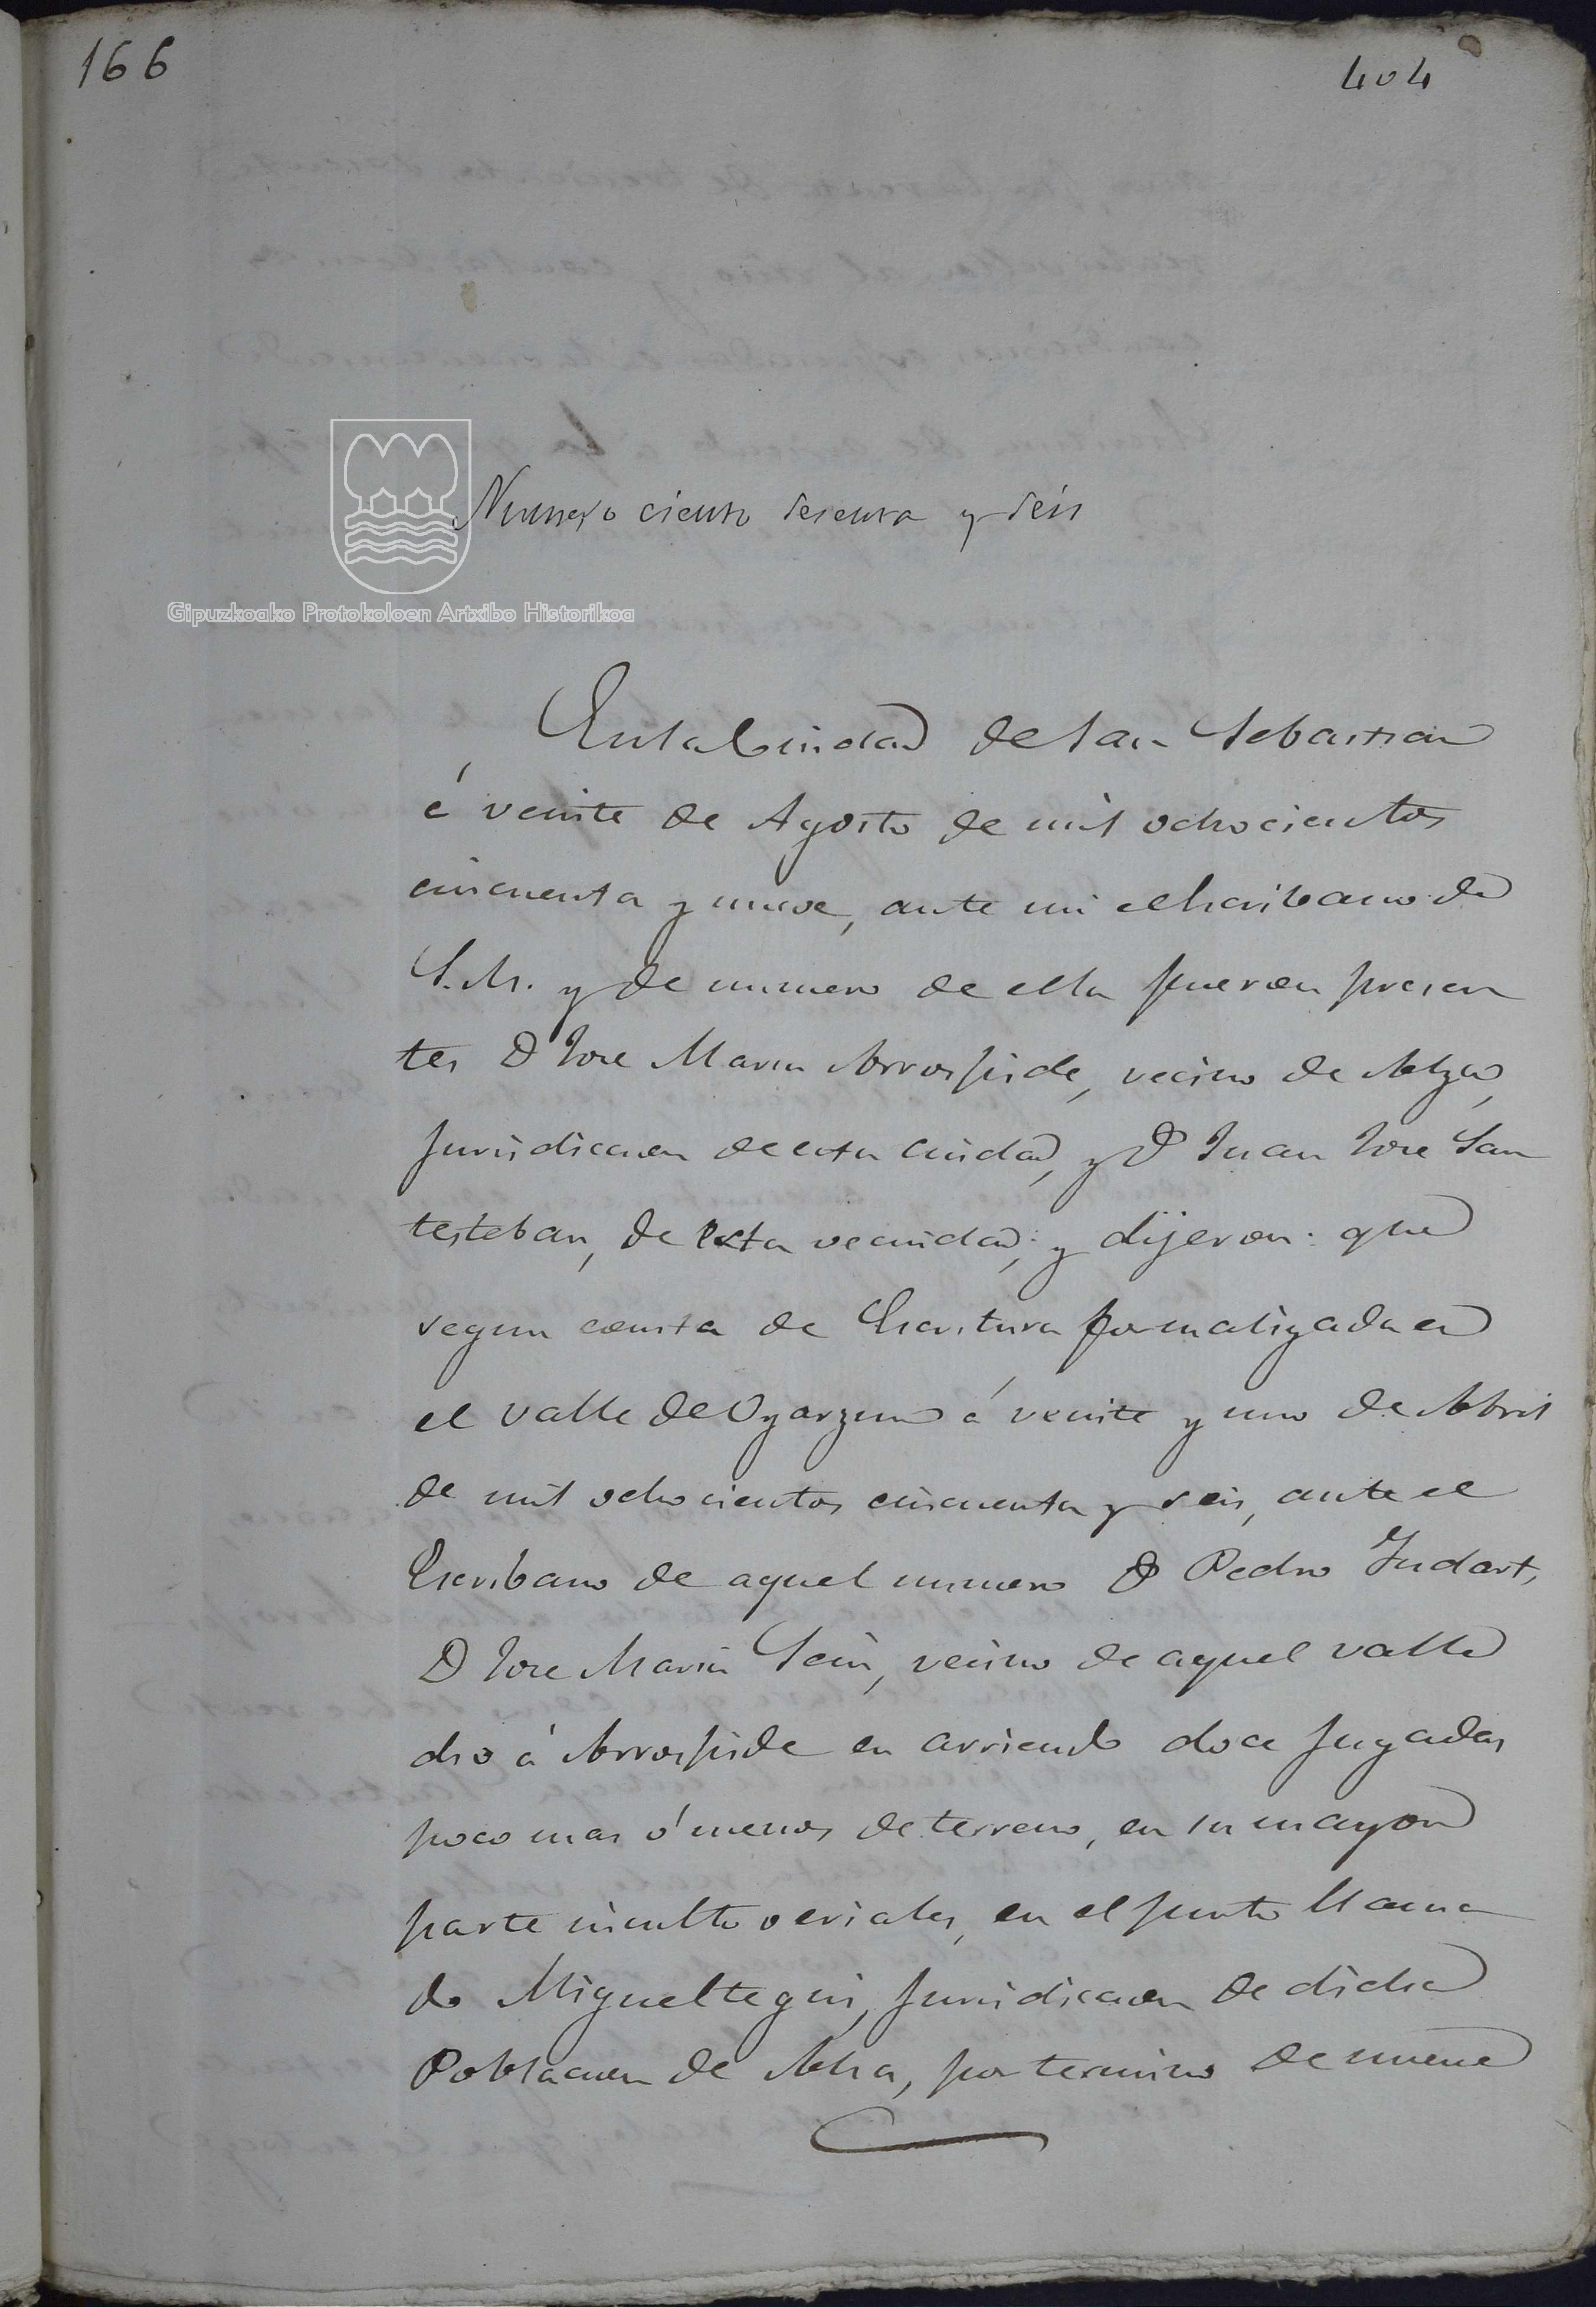 166
404
Numero ciento sesenta y seis
Gipuzkoako Protokoloen Artxibo Historikoa
En la Ciudad de San Sebastian
á veinte de Agosto de mil ochocientos
cincuenta y nueve, ante mi el Escribano de
S. M. y de numero de ella fueron presen
tes D Jose Maria Arrospide, vecino de Alza,
jurisdiccion de esta ciudad, y D Juan Jose San
testeban, de esta vecindad, y dijeron: que
segun consta de Escritura formalizada en
el valle de Oyarzun á veinte y uno de Abril
de mil ochocientos cincuenta y seis, ante el
Escribano de aquel numero D Pedro Indart,
D Jose Maria Sein, vecino de aquel valle
dio á Arrospide en arriendo doce jugadas
poco mas ó menos de terreno, en su mayor
parte inculto o eriales, en el punto llama
do Migueltegui, jurisdiccion de dicha
Poblacion de Alza, por termino de nueve